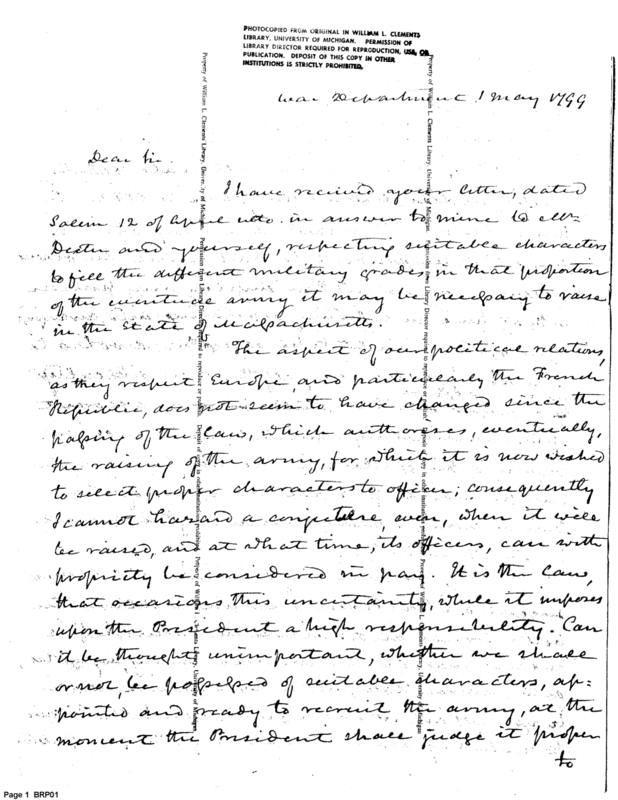 PHOTOCOPIED FROM ORIGINAL IN WILLIAM L. CLEMENTS
LIBRARY, UNIVERSITY OF MICHIGAN. PERMISSION OF
LIBRARY DIRECTOR REQUIRED FOR REPRODUCTION, USE, OR
PUBLICATION. DEPOSIT OF THIS COPY IN OTHER
INSTITUTIONS IS STRICTLY PROHIBITED.
War Department 1 May 1799
Dear Sir.
I have received your letter, dated
Salem 12 of April ulto. in answer to mine to Mr
Dexter and yourself, respecting suitable characters
to fill the different military grades, in that proportion
of the eventual army it may be necessary to raise
in the State of Massachusetts.
The aspect of our political relations,
as they respect Europe and particularly the French
Republic, does not seem to have changed since the
passing of the Law, which authorises, eventually,
the raising of the army, for which it is now wished
to select proper characters to officer; consequently
I cannot hazard a conjecture, even, when it will
be raised, and at what time, its officers, can with
propriety be considered in pay. It is the Law,
that occasions this uncertainty, while it imposes
upon the President a high responsibility. Can
it be thought unimportant, whether we shall
or not, be possessed of suitable characters, ap=
pointed and ready to recruit the army, at the
moment the President shall judge it proper
to
Page 1 BRP01